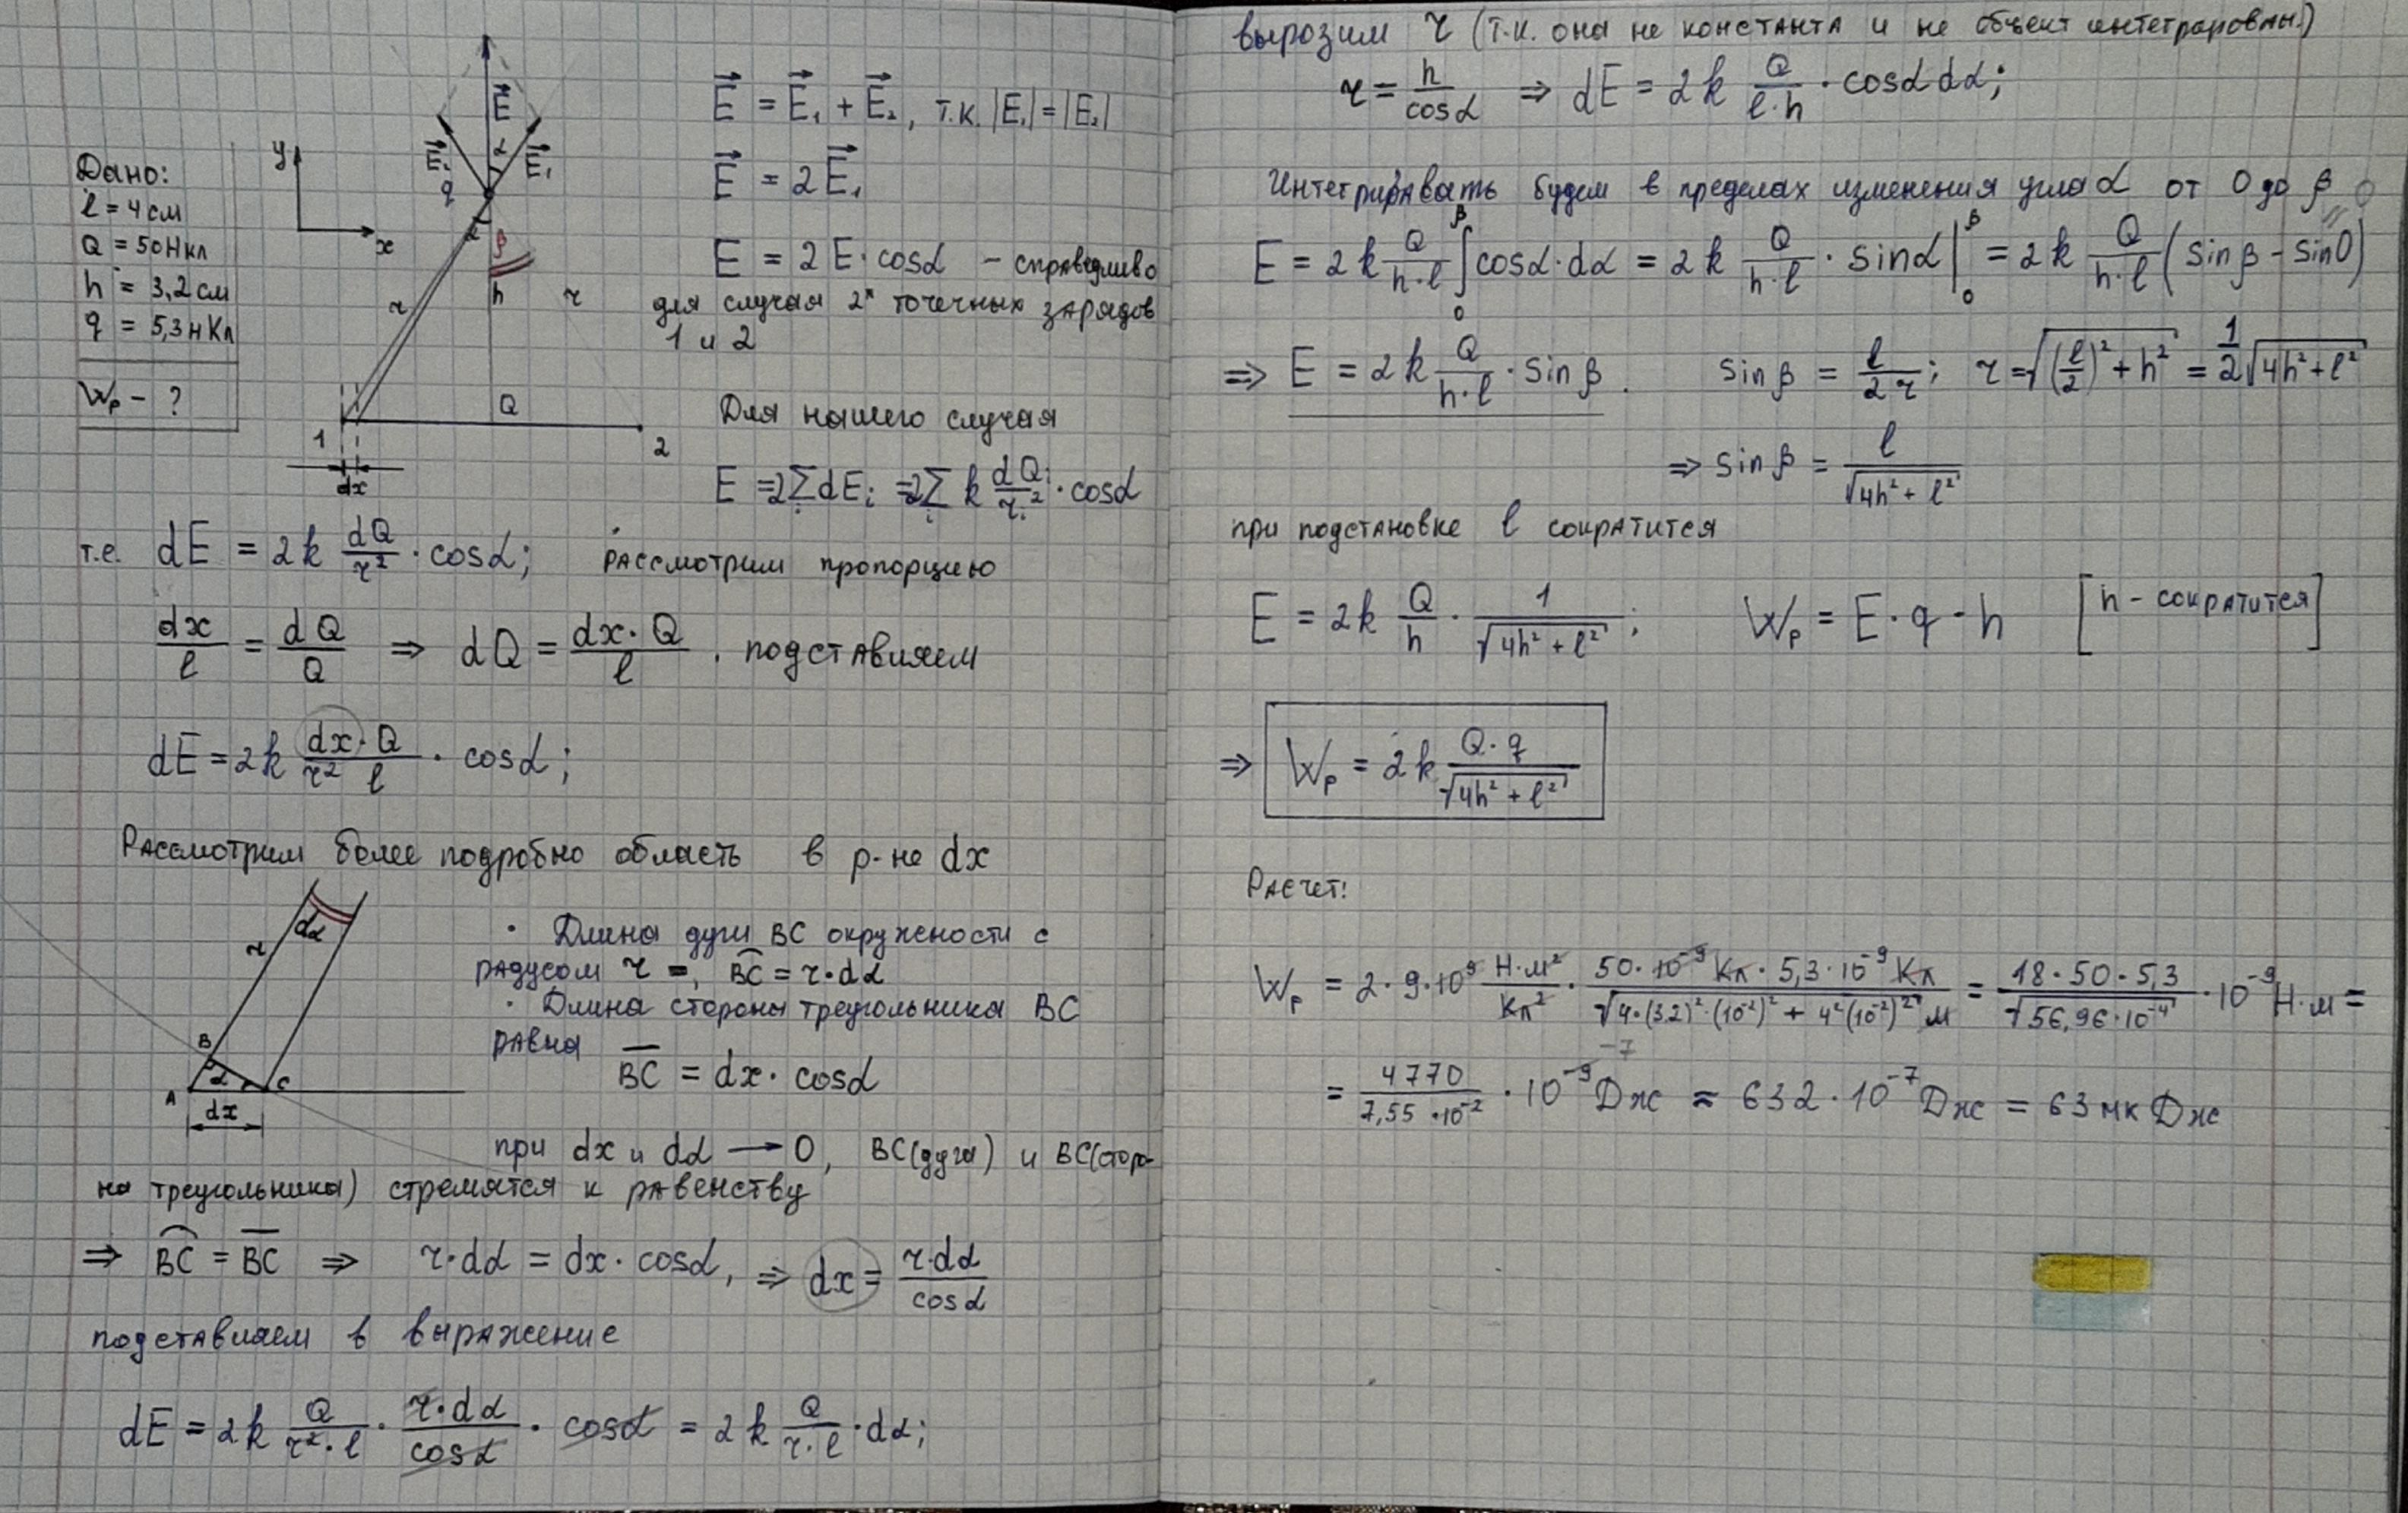 Дано:
l = 4 см
Q = 50 Нкл
h = 3,2 см
q = 5,3 нКл
Wp - ?
y
x
E
α
E₂
E₁
q
α
β
h
r
r
Q
1
2
dx
E = E₁ + E₂, т.к. |E₁| = |E₂|
E = 2E₁
E = 2E·cosα – справедливо
для случая 2ˣ точечных зарядов
1 и 2
Для нашего случая
E = 2∑dEᵢ = 2∑ k dQᵢ/rᵢ² · cosα
т.е. dE = 2k dQ/r² · cosα; рассмотрим пропорцию
dx/l = dQ/Q ⇒ dQ = dx·Q/l . подставляем
dE = 2k dx·Q/r² l · cosα;
Рассмотрим более подробно область в р-не dx
dα
r
B
α
A
C
dx
· Длина дуги BC окружености с
радусом r =, BC = r·dα
· Длина стороны треугольника BC
равна
BC = dx · cosα
при dx и dα → 0, BC(дуга) и BC(сторо-
на треугольника) стремятся к равенству
⇒ BC = BC ⇒ r·dα = dx·cosα, ⇒ dx = r·dα/cosα
подставляем в выражение
dE = 2k Q/r²·l · r·dα/cosα · cosα = 2k Q/r·l · dα;
вырозим r (т.к. она не константа и не объект интегрирован.)
r = h/cosα ⇒ dE = 2k Q/l·h · cosα dα;
Интегрировать будем в пределах изменения угла α от 0 до β
E = 2k Q/h·l ∫₀^β cosα·dα = 2k Q/h·l · sinα|₀^β = 2k Q/h·l (sinβ - sin0)
0
⇒ E = 2k Q/h·l · sinβ . sinβ = l/2r; r = √((l/2)² + h²) = 1/2 √(4h² + l²)
⇒ sinβ = l/√(4h² + l²)
при подстановке l сократится
E = 2k Q/h · 1/√(4h² + l²); Wp = E·q·h [h - сократится]
⇒ Wp = 2k Q·q/√(4h² + l²)
Расчет:
Wp = 2·9·10⁹ Н·м²/Кл² · 50·10⁻⁹ Кл · 5,3·10⁻⁹ Кл/√(4·(3,2)²·(10⁻²)² + 4²(10⁻²)²) м = 18·50·5,3/√(56,96·10⁻⁴) · 10⁻⁹ Н·м =
-7
= 4770/7,55·10⁻² · 10⁻⁹ Дж ≈ 632·10⁻⁷ Дж = 63 мкДж